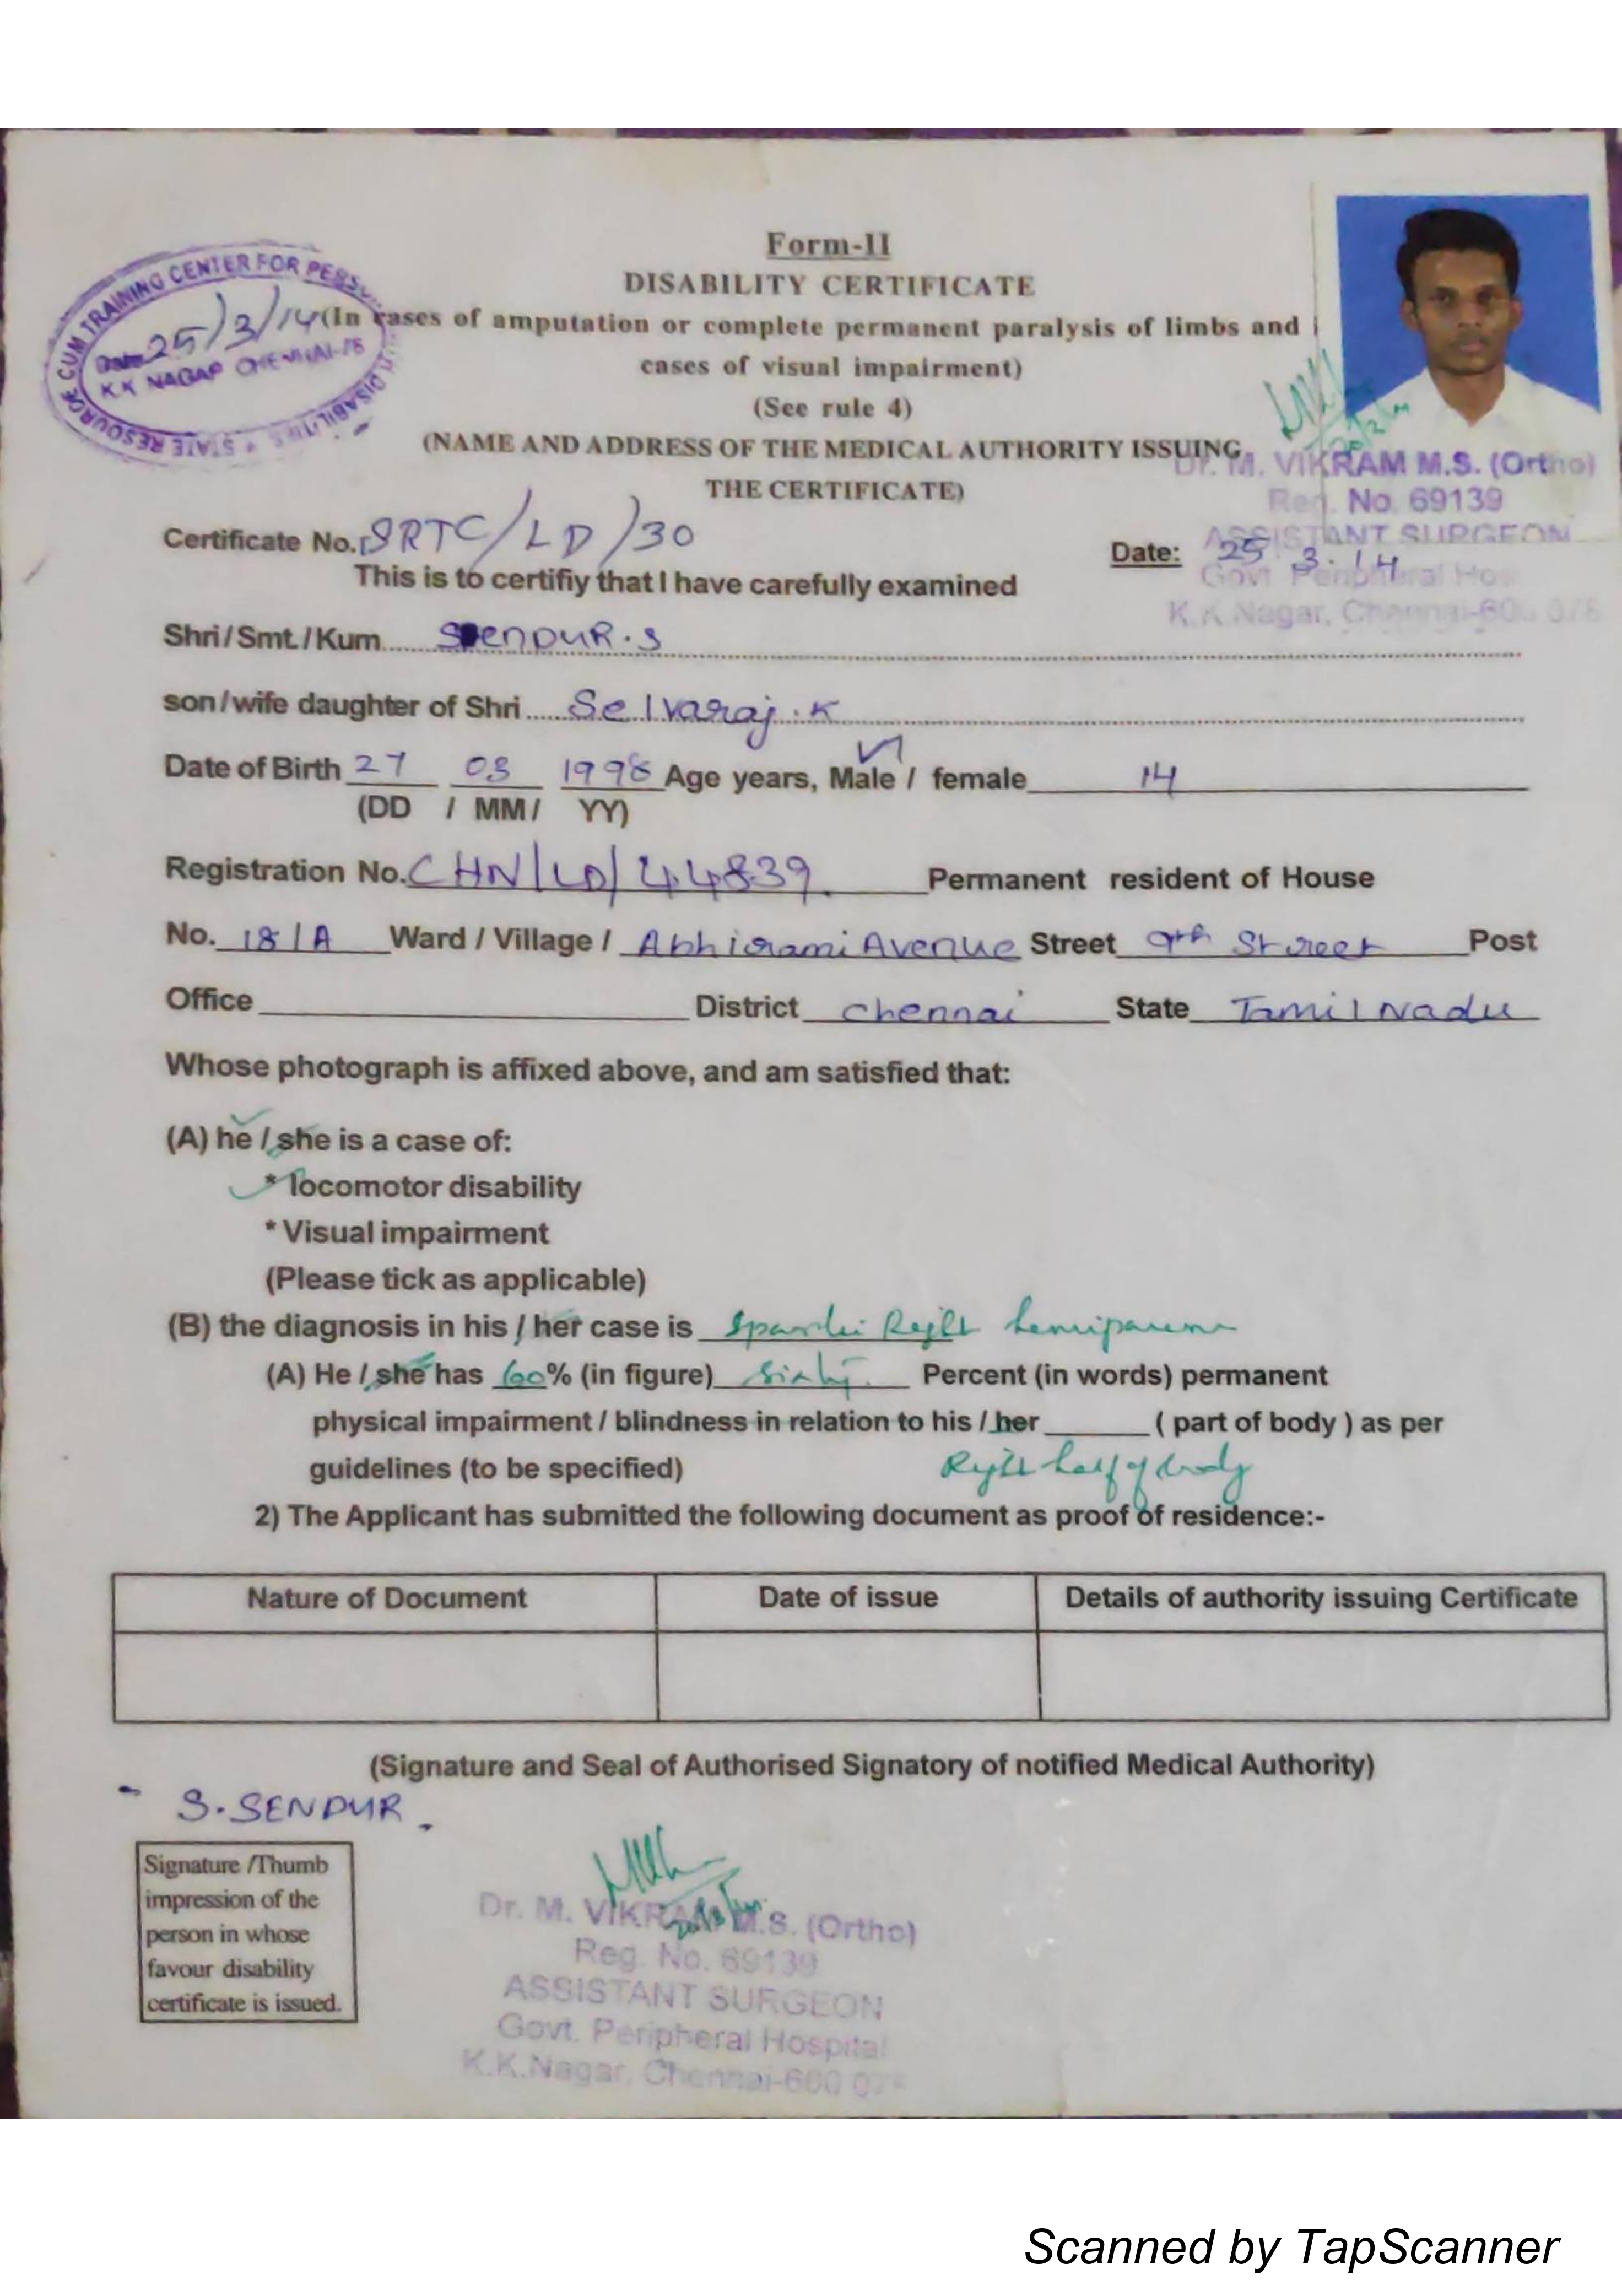 Form-II
DISABILITY CERTIFICATE
(In cases of amputation or complete permanent paralysis of limbs and
cases of visual impairment)
(See rule 4)
(NAME AND ADDRESS OF THE MEDICAL AUTHORITY ISSUING
THE CERTIFICATE)
STATE RESOURCE CUM TRAINING CENTER FOR DISABILITIES
Date 25/3/14
K.K NAGAR CHENNAI-78
Dr. M. VIKRAM M.S. (Ortho)
Reg. No. 69139
ASSISTANT SURGEON
Govt Peripheral Hos
K.K.Nagar, Chennai-600 078
Certificate No. SRTC/LD/30
Date: 25.3.14
This is to certifiy that I have carefully examined
Shri/Smt./Kum. SENDUR.S
son/wife daughter of Shri Selvaraj.K
Date of Birth 27 03 1998 Age years, Male / female 14
(DD / MM/ YY)
Registration No. CHN/LD/44839 Permanent resident of House
No. 18/A Ward / Village / Abhirami Avenue Street 9th Street Post
Office District chennai State Tamil Nadu
Whose photograph is affixed above, and am satisfied that:
(A) he / she is a case of:
* locomotor disability
* Visual impairment
(Please tick as applicable)
(B) the diagnosis in his / her case is Right
(A) He / she has 60% (in figure) Sixty Percent (in words) permanent
physical impairment / blindness in relation to his / her ( part of body ) as per
guidelines (to be specified) Right half of body
2) The Applicant has submitted the following document as proof of residence:-
Nature of Document Date of issue Details of authority issuing Certificate
(Signature and Seal of Authorised Signatory of notified Medical Authority)
S.SENDUR.
Signature /Thumb
impression of the
person in whose
favour disability
certificate is issued.
Dr. M. VIKRAM M.S. (Ortho)
Reg. No. 69139
ASSISTANT SURGEON
Govt. Peripheral Hospital
K.K.Nagar, Chennai-600 078
Scanned by TapScanner